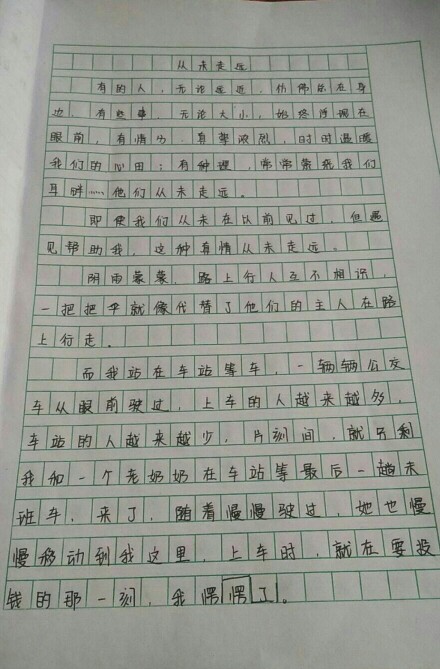 从未走远
有的人，无论远近，仿佛都在身
边，有些事，无论大小，始终浮现在
眼前，有情分，真挚浓烈，时时温暖
我们的心田；有种爱，常常萦绕我们
耳畔……他们从未走远。
即使我们从未在以前见过，但遇
见帮助我，这种真情从未走远。
阴雨蒙蒙，路上行人互不相识，
一把把伞就像代替了他们的主人在路
上行走。
而我站在车站等车，一辆辆公交
车从眼前驶过，上车的人越来越多，
车站的人越来越少，片刻间，就只剩
我和一个老奶奶在车站等最后一趟末
班车，来了，随着慢慢驶过，她也慢
慢移动到我这里，上车时，就在要投
钱的那一刻，我愣愣了。